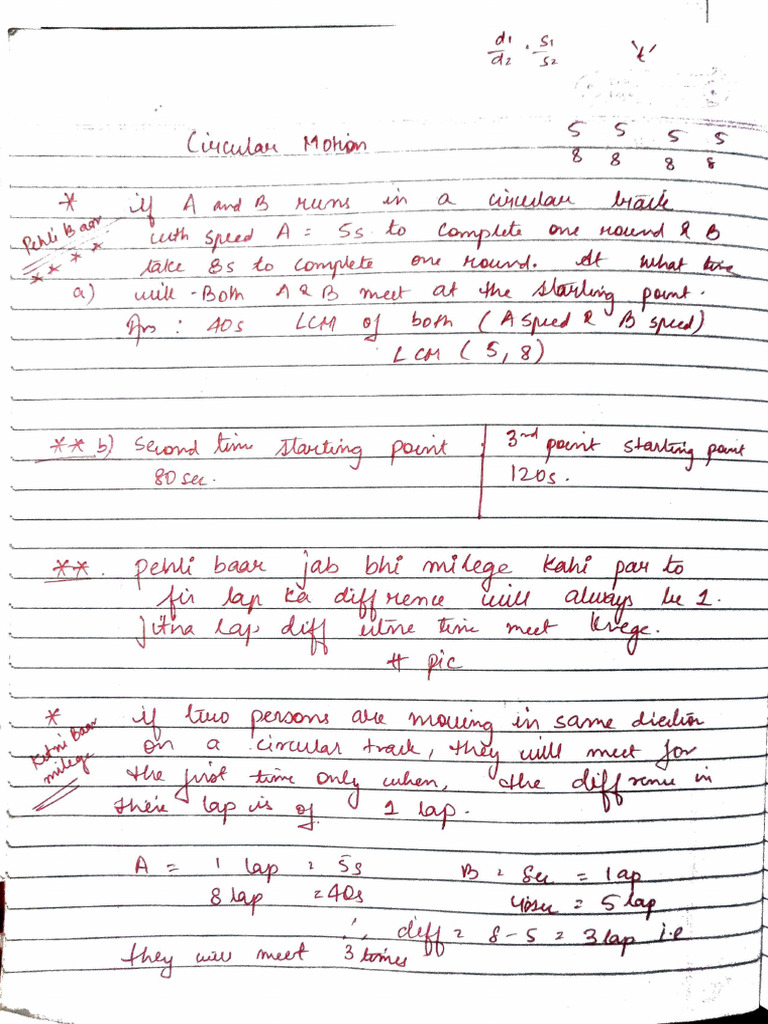 d1/d2 . s1/s2 't'
5 5 5 5
Circular Motion
8 8 8 8
* if A and B runs in a circular track
Pehli Baar
with speed A = 5s to complete one round & B
****
take 8s to complete one round. At what time
a) will - Both A & B meet at the starting point.
Ans : 40s LCM of both (A speed & B speed)
LCM (5, 8)
** b) Second time starting point
3rd point starting point
80sec.
120s.
**. pehli baar jab bhi milege kahi par to
fir lap ka diffrence will always be 1.
Jitna lap diff utne time meet krege.
# pic
* if two persons are moving in same diection
Kitni Baar milege
on a circular track, they will meet for
the first time only when, the diffrenu in
there lap is of 1 lap.
A = 1 lap = 5s B = 8sec = 1 lap
8 lap = 40s 40sec = 5 lap
∴ diff = 8-5 = 3 lap i.e
they will meet 3 times